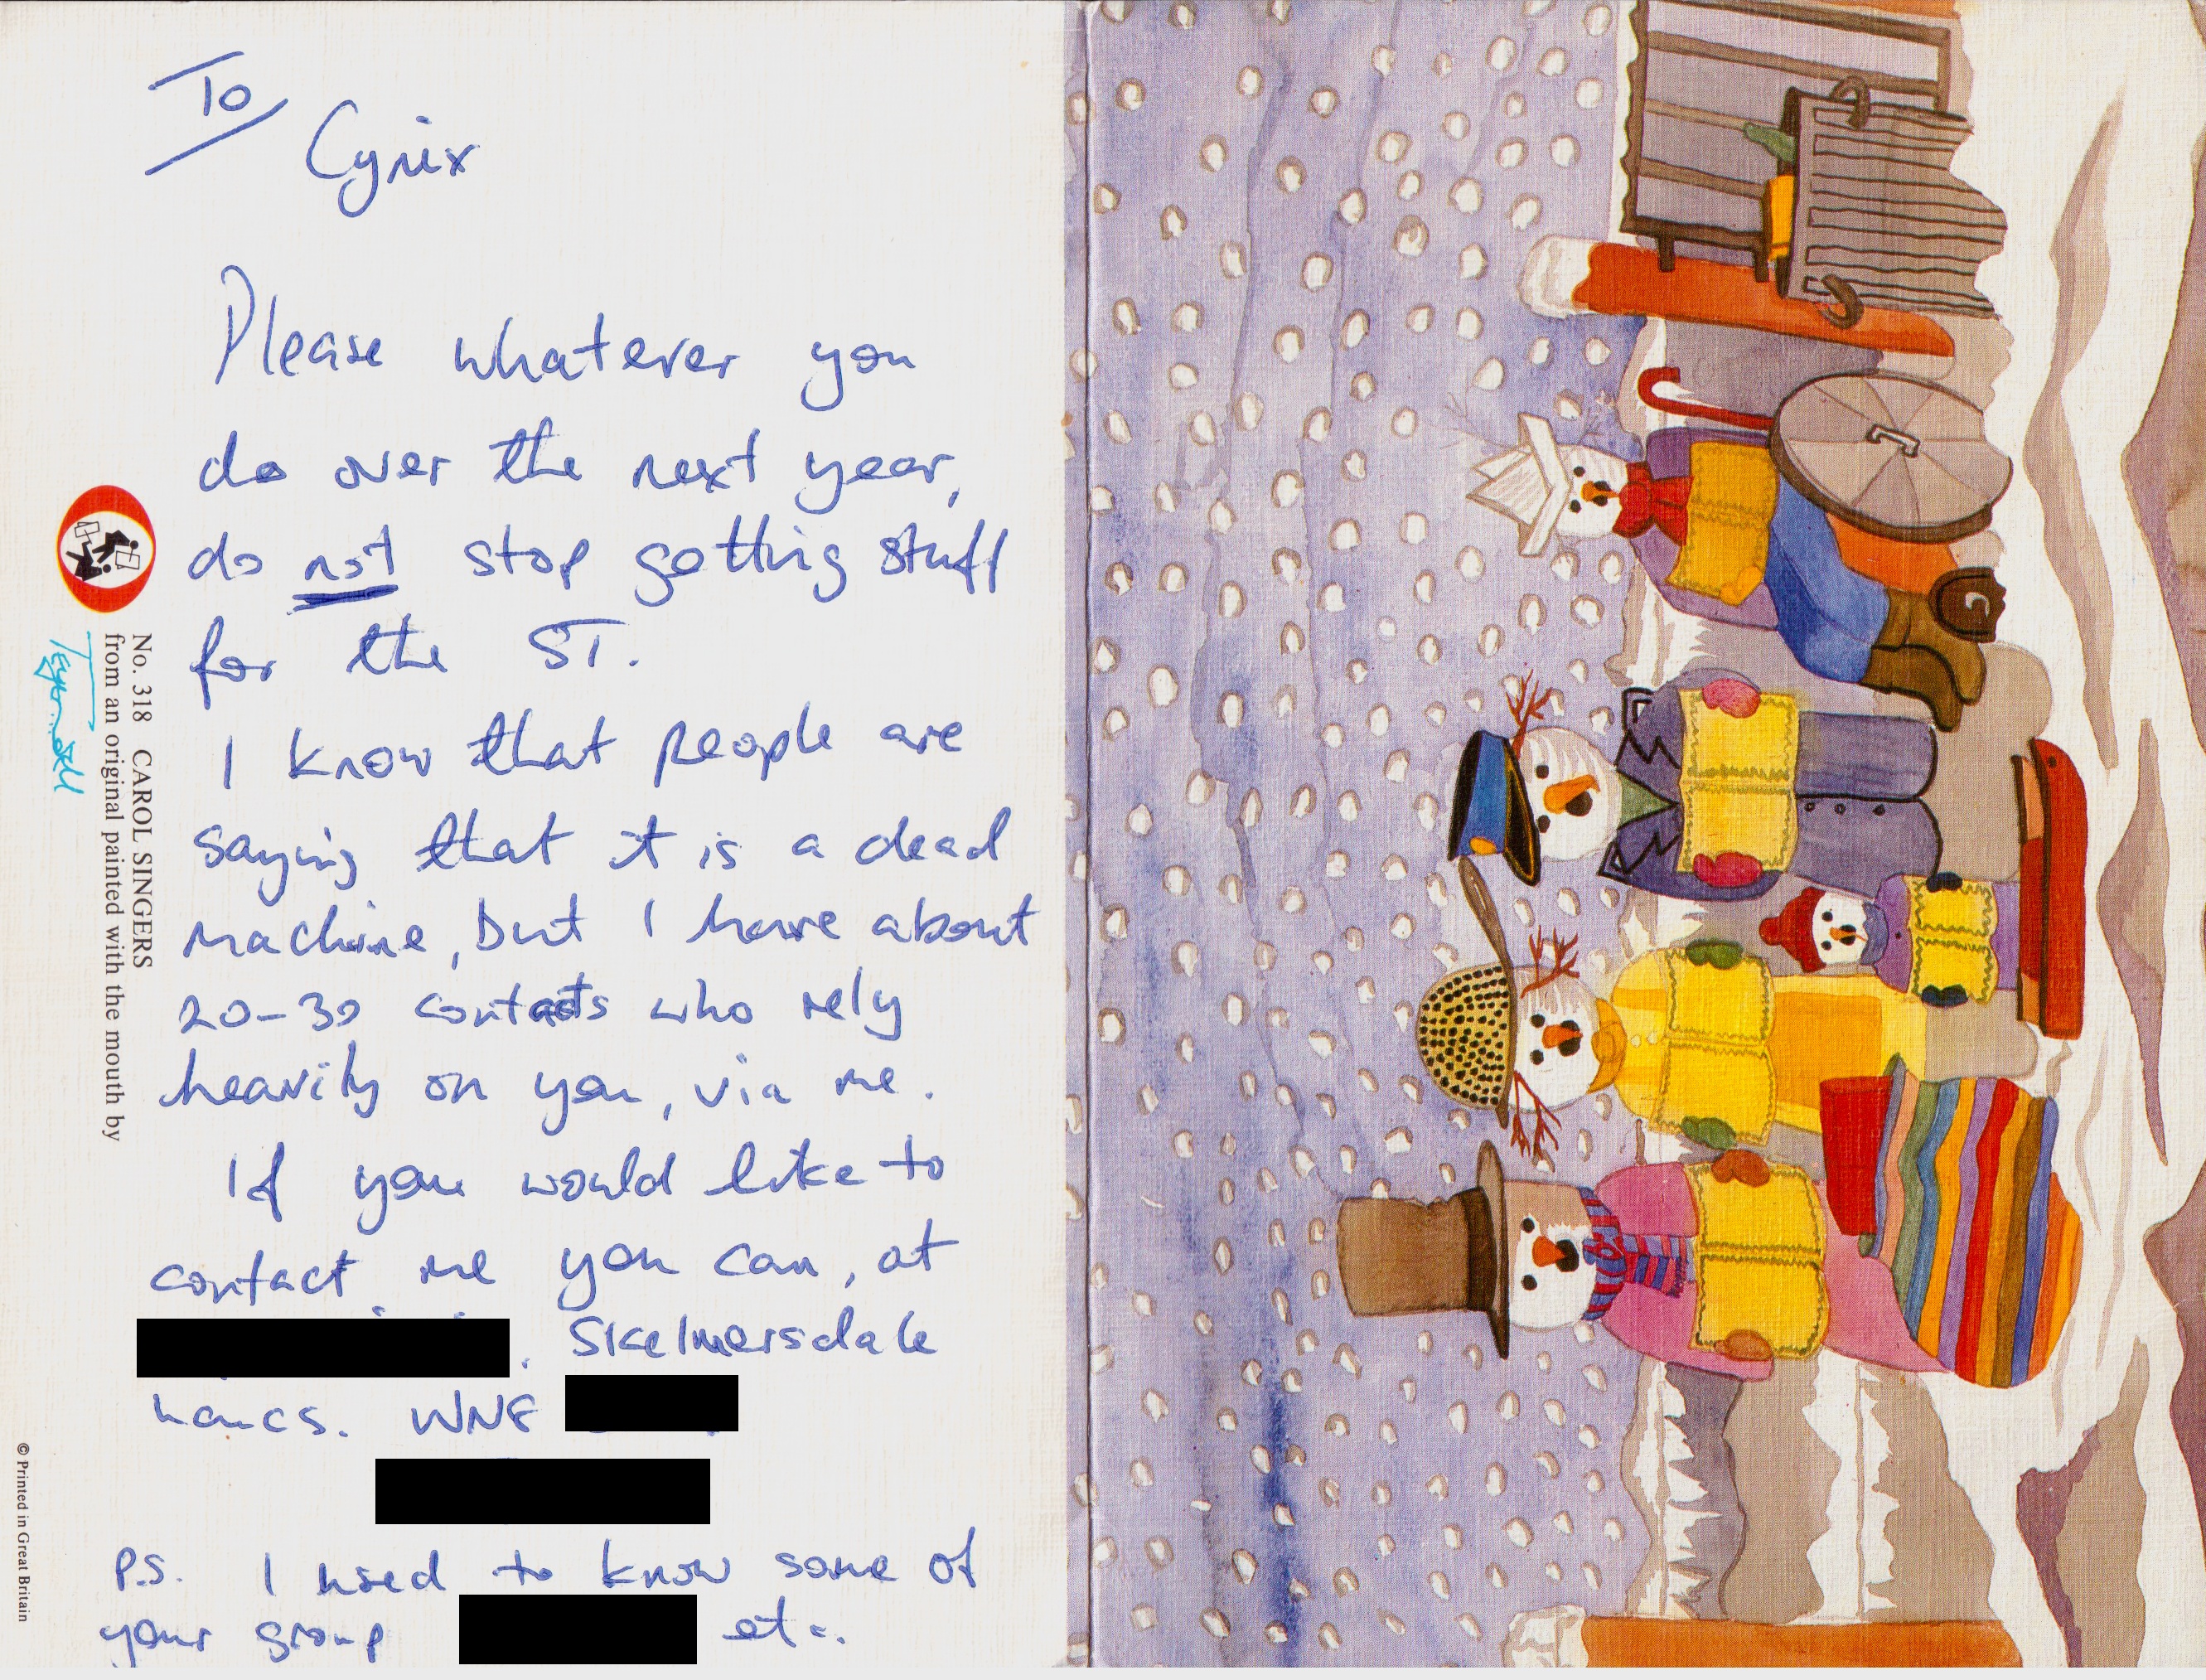 To
Cyrix
Please whatever you
do over the next year,
do not stop getting stuff
for the ST.
I know that people are
saying that it is a dead
machine, but I have about
20-30 contacts who rely
heavily on you, via me.
If you would like to
contact me you can, at
. Skelmersdale
Lancs. WN8
P.S. I used to know some of
your group etc.
No. 318 CAROL SINGERS
from an original painted with the mouth by
© Printed in Great Britain